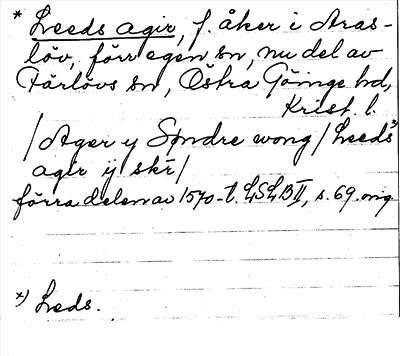 * Leeds agir, f. åker i Aras-
löv, förr egen sn, nu del av
Färlövs sn, Östra Göinge hd,
Krist. l.
/Ager y Søndre wong/Leeds x)
agir ij skr/
förra delen av 1570-t. LSLB II, s. 69. orig
x) Leds.